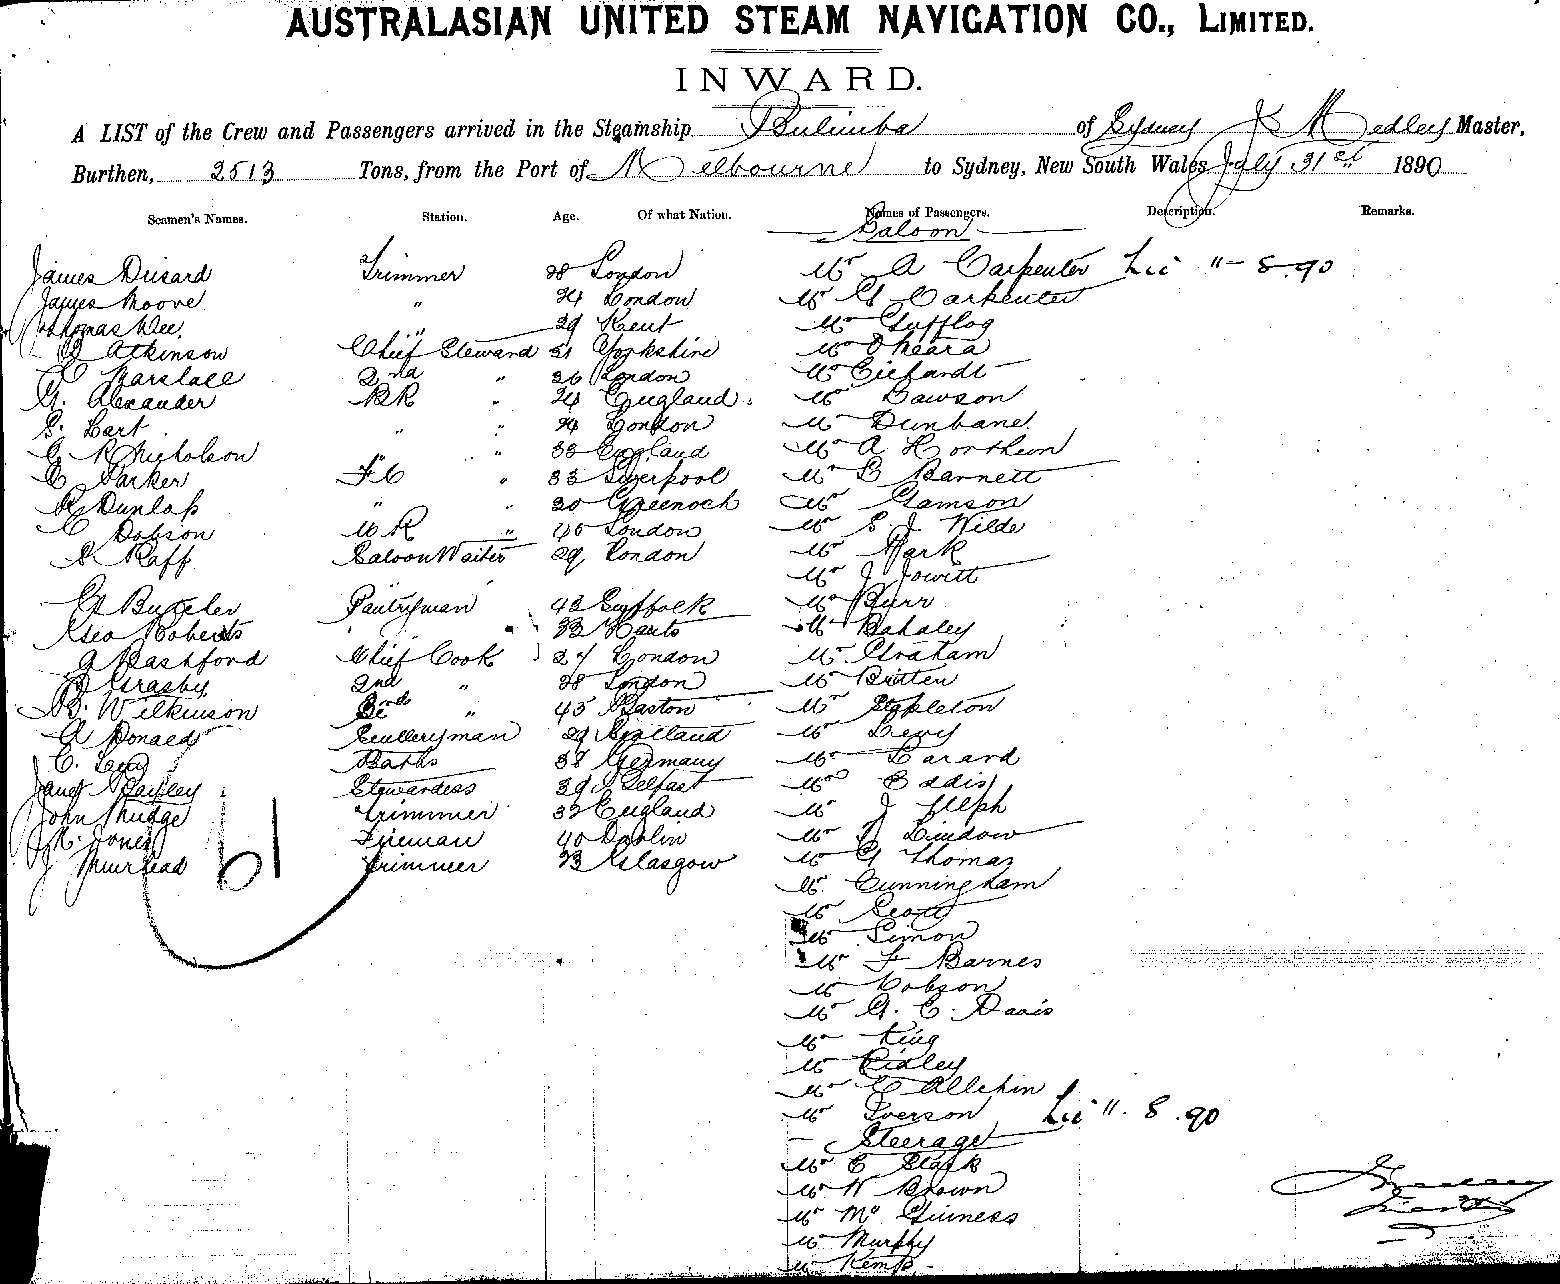 AUSTRALASIAN UNITED STEAM NAVIGATION CO., LIMITED.
INWARD.
A LIST of the Crew and Passengers arrived in the Steamship Bulimba of Sydney J Medley Master,
Burthen, 2513 Tons, from the Port of Melbourne to Sydney, New South Wales July 31st 1890
Seamen's Names. Station. Age. Of what Nation. Names of Passengers. Description. Remarks.
Saloon
James Trimmer 28 London Mr A Carpenter 8.90
James Moore " 24 London Mr G Carpenter
Thomas " 29 Kent Mr
Atkinson Chief Steward Yorkshire Mr O'Meara
2nd " 26 London Mr
G. Alexander BR " 24 England Mr Dawson
S. Hart " " 24 London Mr Dunbane
G R Nicholson " " 33 England Mr A
C Parker FC " 33 Liverpool Mr Barnett
R Dunlop " " 20 Greenock Mr
C Dobson " 40 London Mr S. J. Wilde
S Raff Saloon Waiter 29 London Mr Hark
Mr J Jowitt
" Pantryman 43 Suffolk Mr Burr
Geo Roberts " 33 Hants Mr Bahaley
Bashford Chief Cook 27 London Mr Graham
Grasby 2nd " 28 London Mr Britten
B. Wilkinson 3rd " 45 Mr Stapleton
A Donald Sculleryman 29 Scotland Mr Levy
C. Levy Baths 38 Germany Mr
Janet Bayley Stewardess 39 Belfast Eddis
John Mudge Trimmer 32 England Mr J
Jones Fireman 40 Dublin Mr Lindow
J Muirhead Trimmer 23 Glasgow Mr G Thomas
61
Mr Cunningham
Mr Scott
Mr Simon
Mr F Barnes
Mr Cobson
Mr G. C. Davis
Mr King
Mr Ridley
Mr C Allchin
Mr Iverson 8.90
Steerage
Mr C Clark
Mr W Brown
Mr McGuiness
Mr Murphy
Mr Kemp